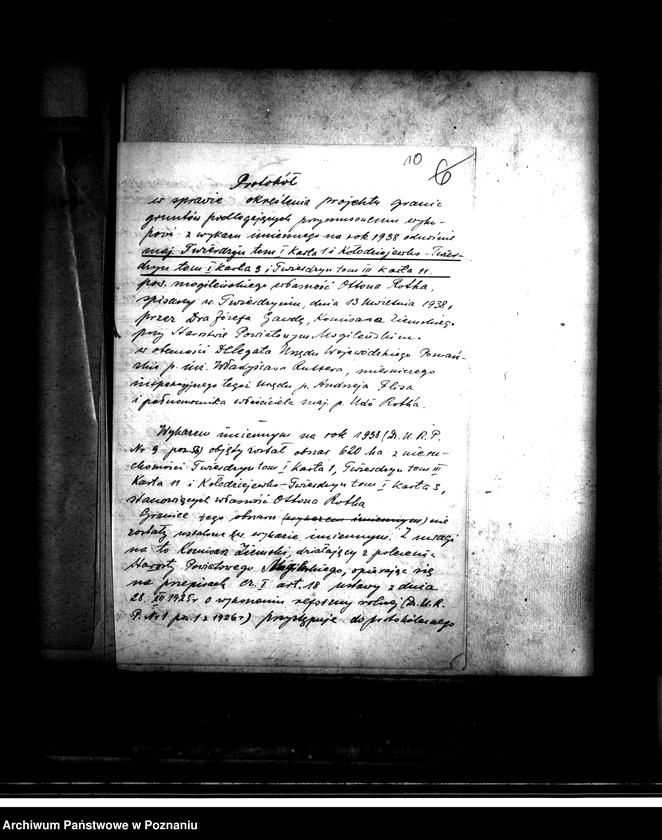 10 6
Protokół
w sprawie określenia projektu granic
gruntów podlegających przymusowemu wyku-
powi z wykazu imiennego na rok 1938 odnośnie
maj. Twierdzyn tom I karta 1 i Kołodziejewko-Twier-
dzyn tom I karta 3 i Twierdzyn tom III karta 11.
pow. mogileńskiego własność Ottona Rotha,
spisany w Twierdzyniu, dnia 13 kwietnia 1938,
przez Dra Józefa Gawdę, Komisarza Ziemskiego
przy Starostwie Powiatowym Mogileńskim
w obecności Delegata Urzędu Wojewódzkiego Poznań-
skiego p. inż. Władysława mierniczego
inspekcyjnego tegoż Urzędu p. Andrzeja Flisa
i pełnomocnika właściciela maj. p. Udo Rotha.
Wykazem imiennym na rok 1938 (Dz. U. R. P.
Nr 9 poz. ) objęty został obszar 620 ha z nieru-
chomości Twierdzyn tom I karta 1, Twierdzyn tom III
karta 11 i Kołodziejewko-Twierdzyn tom I karta 3,
stanowiących własność Ottona Rotha
Granice tego obszaru (wykazem imiennym) nie
zostały ustalone w wykazie imiennym. Z uwagi
na to Komisarz Ziemski, działający z polecenia
Starosty Powiatowego Mogileńskiego, opierając się
na przepisach cz. I art. 18 ustawy z dnia
28. XII 1925 r o wykonaniu reformy rolnej (Dz. U. R.
P. Nr 1 poz. 1 z 1926 r) przystępuje do protokólarnego
Archiwum Państwowe w Poznaniu